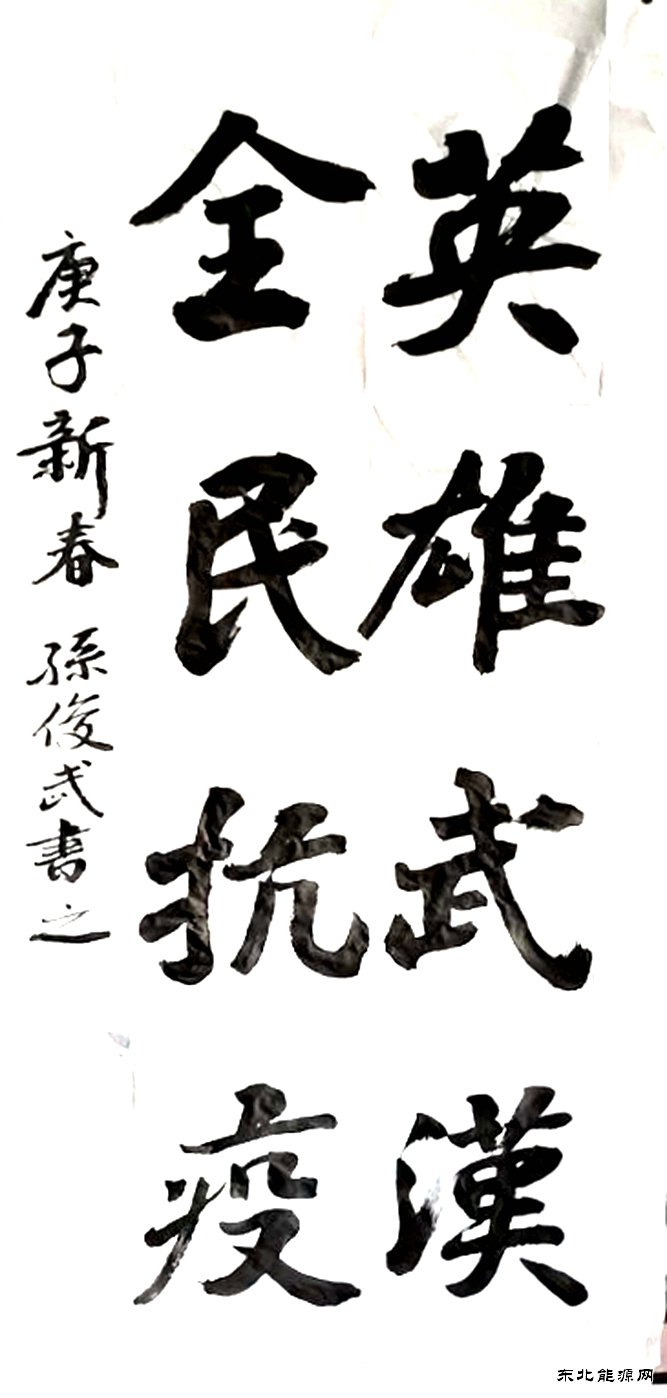 英雄武漢
全民抗疫
庚子新春 孫俊武書之
东北能源网